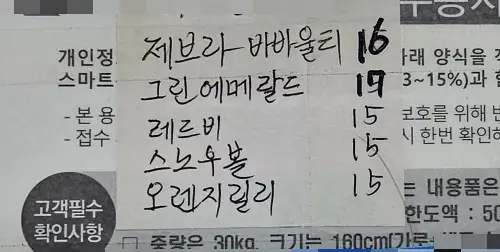 수
개인정
스마트
- 본 용
- 접수
제브라-바바울티 16
그린에메랄드 17
레드비 15
스노우볼 15
오렌지릴리 15
아래 양식을 작
3~15%)과 함
보호를 위해 반
시 한번 확인하
고객필수
확인사항
내용품은
한도액 : 50
□ 중량은 30kg, 크기는 160cm(가로